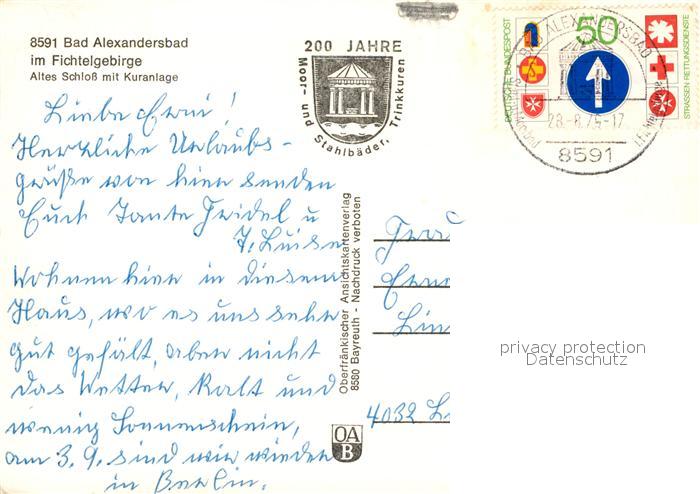 8591 Bad Alexandersbad
im Fichtelgebirge
Altes Schloß mit Kuranlage
200 JAHRE
Moor- und Stahlbäder, Trinkkuren
DEUTSCHE BUNDESPOST
50
STRASSEN-RETTUNGSDIENSTE
BAD ALEXANDERSBAD
28.-8.75-17
8591
Liebe Erni!
Herzliche Urlaubs-
grüße von hier senden
Euch Tante Fridel u
T. Luise
Wohnen hier in diesem
Haus, wo es uns sehr
gut gefällt, aber nicht
das Wetter, kalt und
wenig Sonnenschein,
am 3.9. sind wir wieder
in Berlin.
Oberfränkischer Ansichtskartenverlag
8580 Bayreuth - Nachdruck verboten
OA
B
Frau
4032
privacy protection
Datenschutz